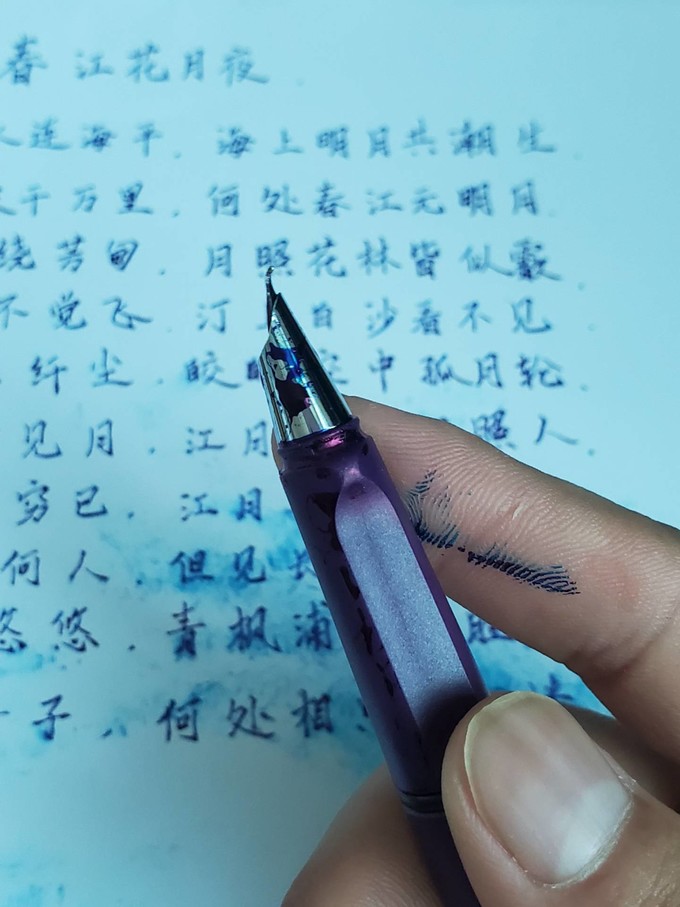 春江花月夜
连海平.海上明月共潮生.
千万里.何处春江无明月.
绕芳甸.月照花林皆似霰.
不觉飞.汀上白沙看不见.
纤尘.皎皎空中孤月轮.
见月.江月照人.
穷已.江月
何人.但见长
悠悠.青枫浦
子.何处相